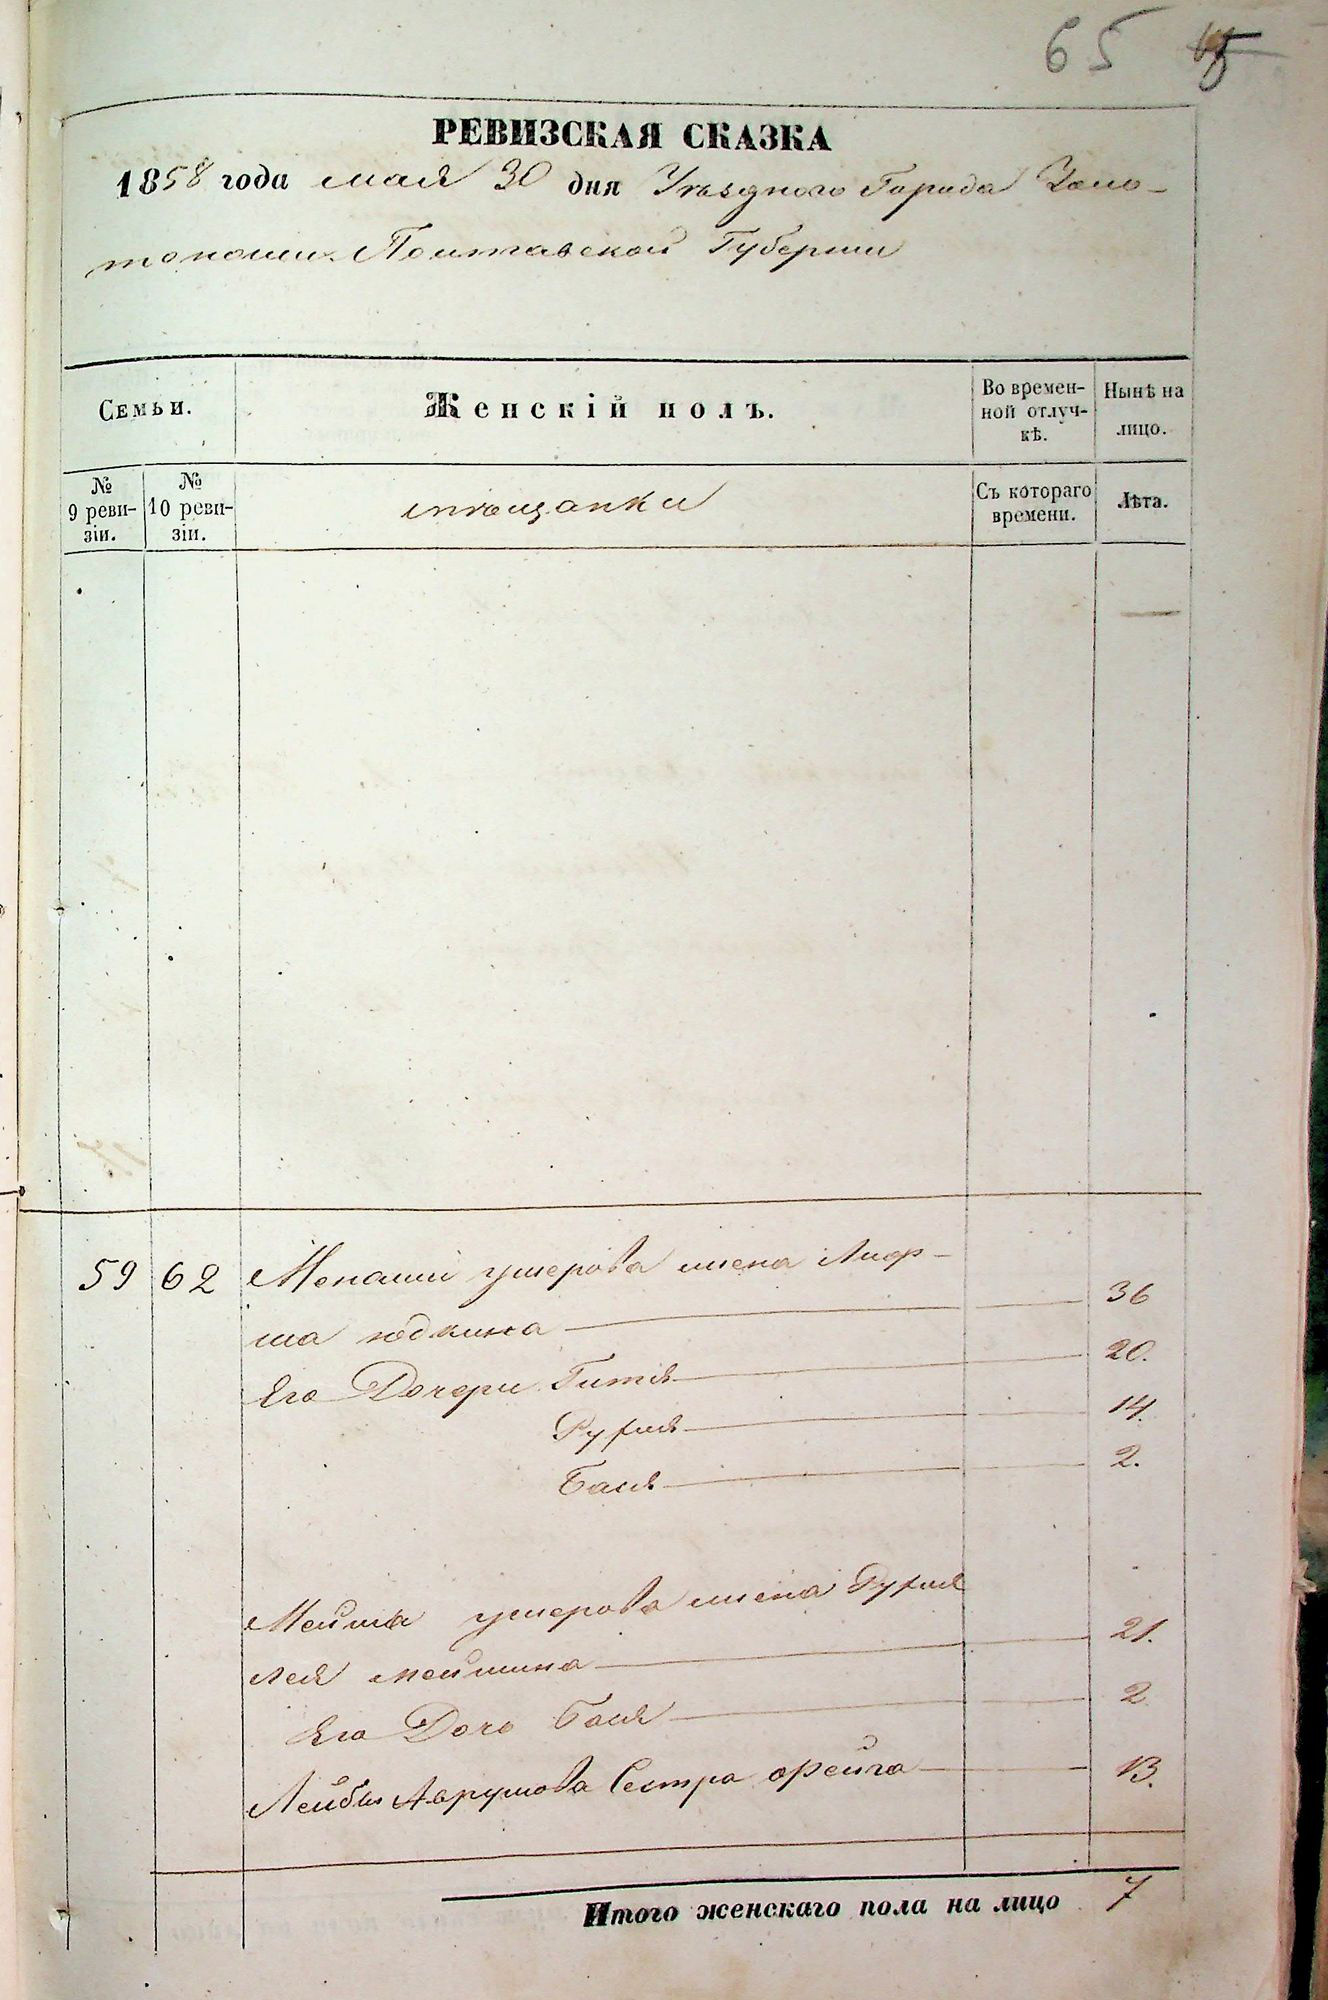 65
РЕВИЗСКАЯ СКАЗКА
1858 года мая 30 дня Уѣзднаго Города Золо-
тоноши Полтавской Губерніи
Семьи.
Женскій полъ.
Во времен-
ной отлуч-
кѣ.
Нынѣ на
лицо.
№
9 реви-
зіи.
№
10 реви-
зіи.
мѣщанки
Съ котораго
времени.
Лѣта.
59 62 Менаши ушерова жена Лиф-
ша юдкина 36
Его Дочери Гитя 20.
Рухля 14.
Бася 2.
Мейша ушерова жена Рухля
Лея мейшина 21.
Его Дочь Бася 2
Лейбы Аврумова Сестра Фейга 13.
Итого женскаго пола на лицо 7